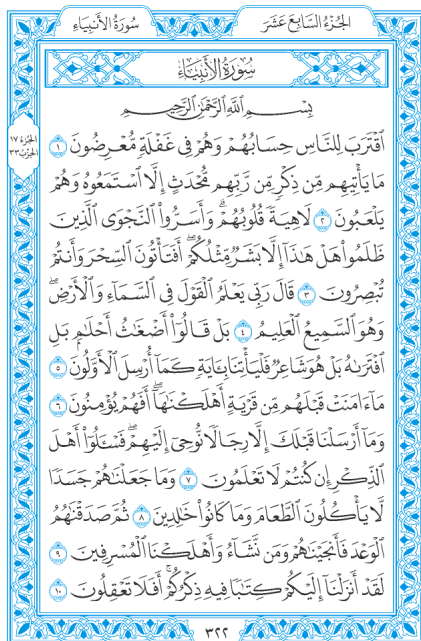 سُورَةُ الأَنبِيَاءِ الجُزْءُ السَّابِعَ عَشَرَ
سُورَةُ الأَنبِيَاءِ
بِسْمِ ٱللَّهِ ٱلرَّحْمَٰنِ ٱلرَّحِيمِ
الجُزْءُ ١٧
الحِزْبُ ٣٣
ٱقْتَرَبَ لِلنَّاسِ حِسَابُهُمْ وَهُمْ فِى غَفْلَةٍ مُّعْرِضُونَ ١
مَا يَأْتِيهِم مِّن ذِكْرٍ مِّن رَّبِّهِم مُّحْدَثٍ إِلَّا ٱسْتَمَعُوهُ وَهُمْ
يَلْعَبُونَ ٢ لَاهِيَةً قُلُوبُهُمْ ۗ وَأَسَرُّوا۟ ٱلنَّجْوَى ٱلَّذِينَ
ظَلَمُوا۟ هَلْ هَٰذَآ إِلَّا بَشَرٌ مِّثْلُكُمْ ۖ أَفَتَأْتُونَ ٱلسِّحْرَ وَأَنتُمْ
تُبْصِرُونَ ٣ قَالَ رَبِّى يَعْلَمُ ٱلْقَوْلَ فِى ٱلسَّمَآءِ وَٱلْأَرْضِ ۖ
وَهُوَ ٱلسَّمِيعُ ٱلْعَلِيمُ ٤ بَلْ قَالُوٓا۟ أَضْغَٰثُ أَحْلَٰمٍۭ بَلِ
ٱفْتَرَىٰهُ بَلْ هُوَ شَاعِرٌ فَلْيَأْتِنَا بِـَٔايَةٍ كَمَآ أُرْسِلَ ٱلْأَوَّلُونَ ٥
مَآ ءَامَنَتْ قَبْلَهُم مِّن قَرْيَةٍ أَهْلَكْنَٰهَآ ۖ أَفَهُمْ يُؤْمِنُونَ ٦
وَمَآ أَرْسَلْنَا قَبْلَكَ إِلَّا رِجَالًا نُّوحِىٓ إِلَيْهِمْ ۖ فَسْـَٔلُوٓا۟ أَهْلَ
ٱلذِّكْرِ إِن كُنتُمْ لَا تَعْلَمُونَ ٧ وَمَا جَعَلْنَٰهُمْ جَسَدًا
لَّا يَأْكُلُونَ ٱلطَّعَامَ وَمَا كَانُوا۟ خَٰلِدِينَ ٨ ثُمَّ صَدَقْنَٰهُمُ
ٱلْوَعْدَ فَأَنجَيْنَٰهُمْ وَمَن نَّشَآءُ وَأَهْلَكْنَا ٱلْمُسْرِفِينَ ٩
لَقَدْ أَنزَلْنَآ إِلَيْكُمْ كِتَٰبًا فِيهِ ذِكْرُكُمْ ۖ أَفَلَا تَعْقِلُونَ ١٠
٣٢٢